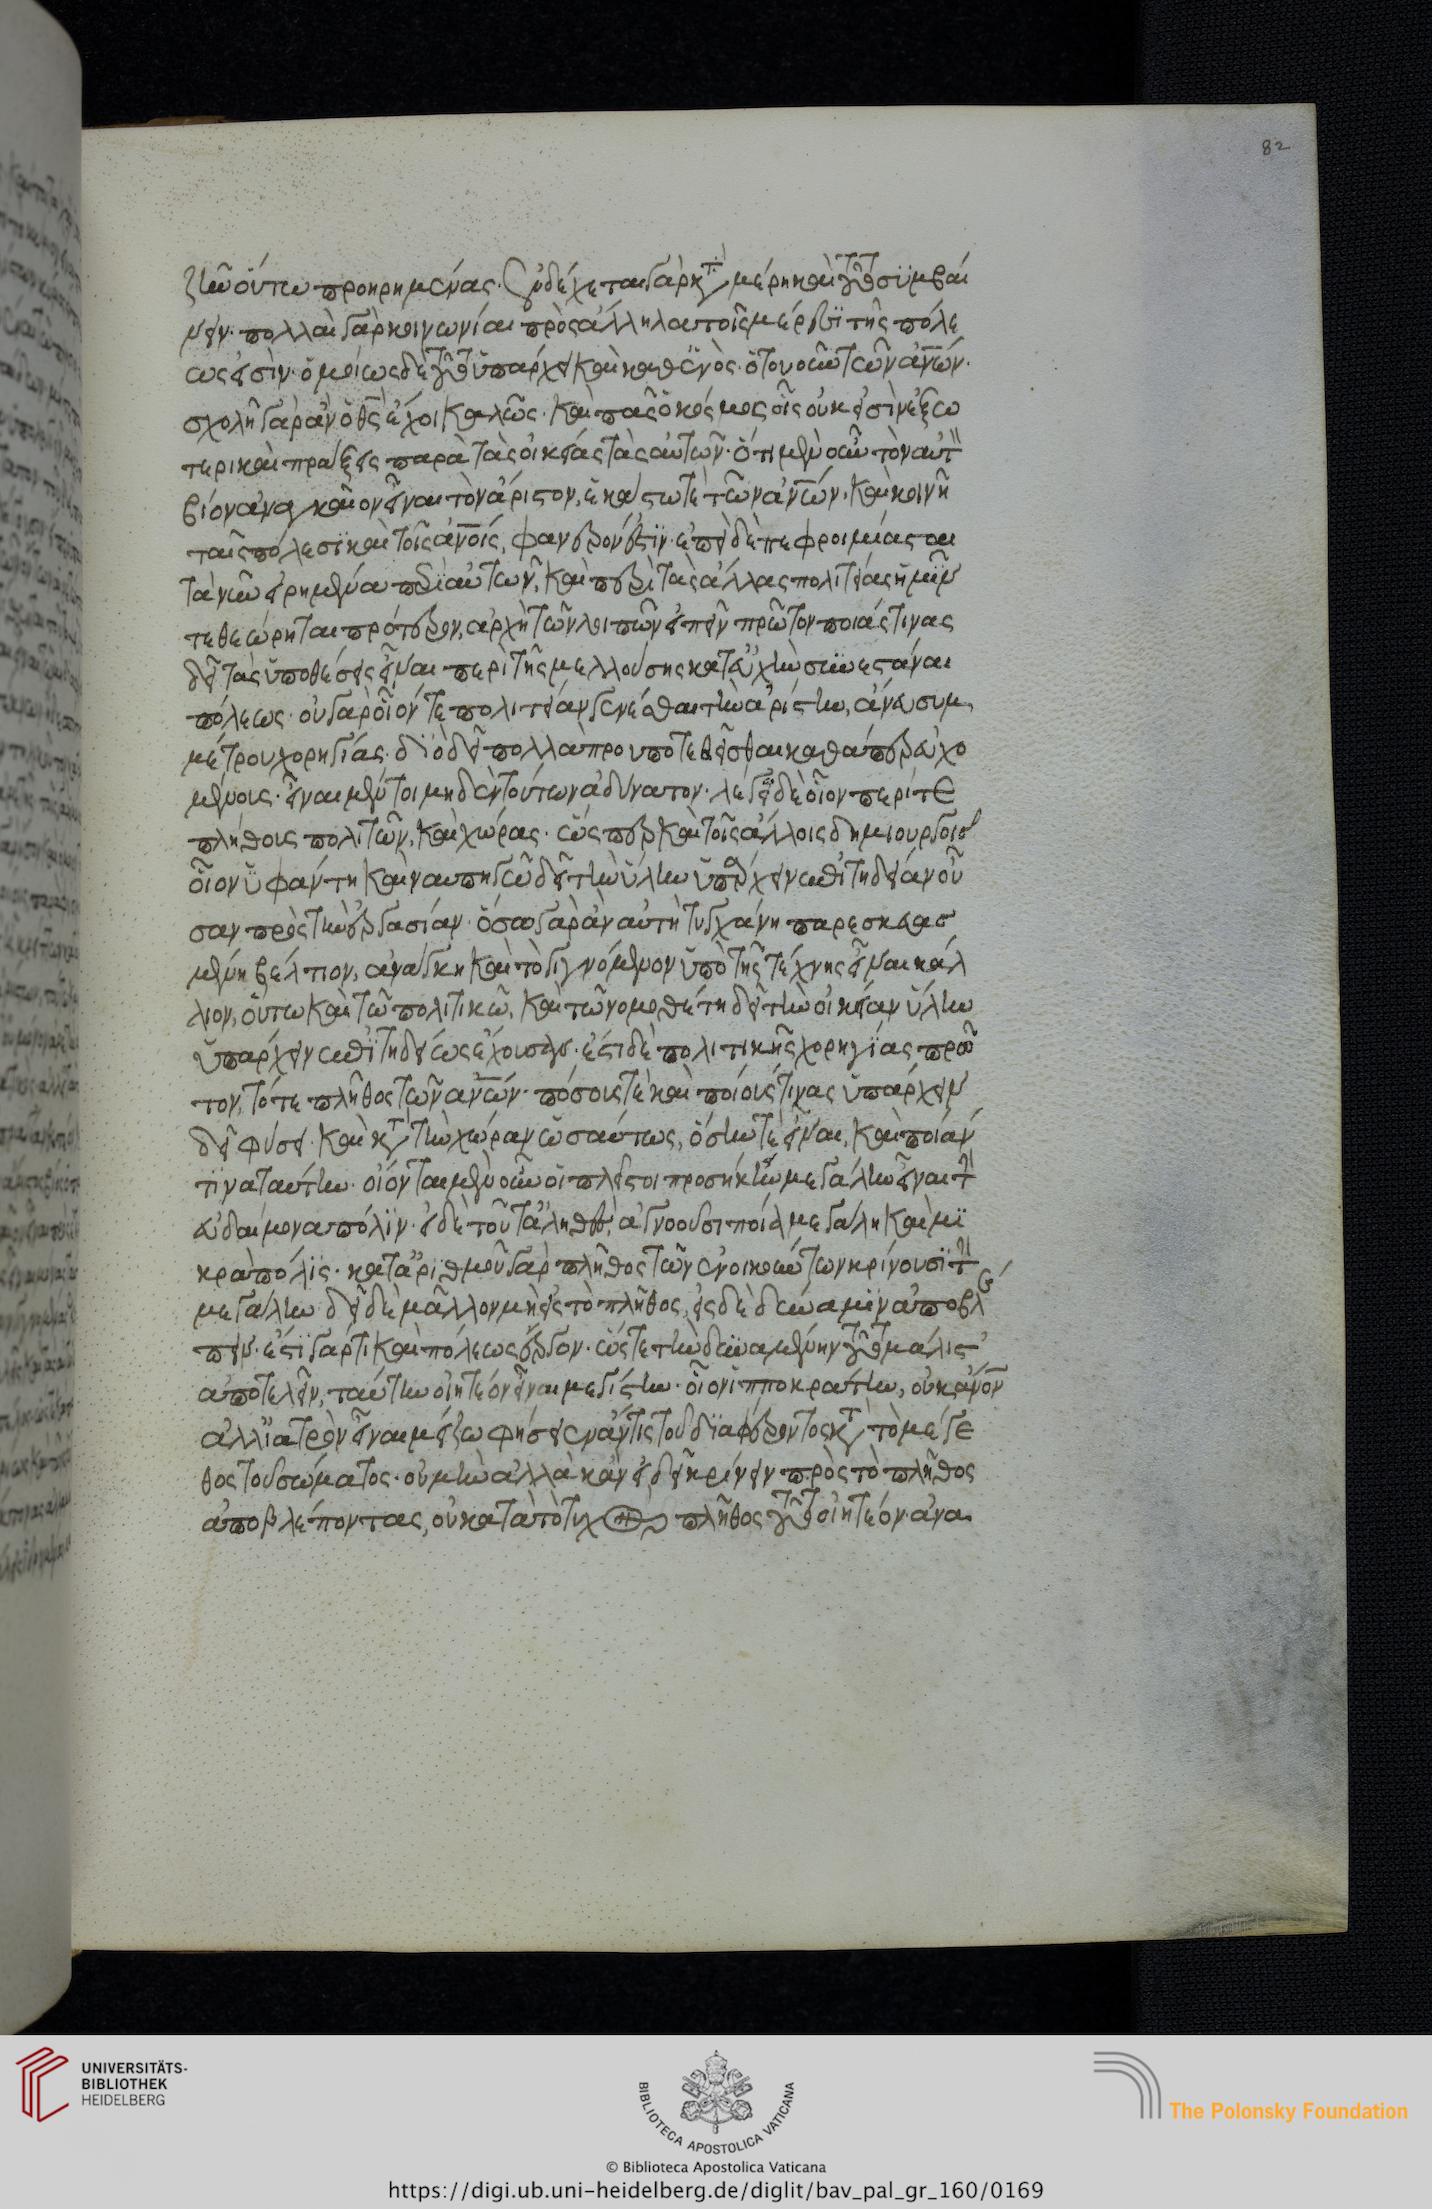 82
ζῆν οὕτω προηρημένας· ἐνδέχεται γὰρ κατὰ μέρη καὶ τοῦτο συμβαί
νειν· πολλαὶ γὰρ κοινωνίαι πρὸς ἄλληλα τοῖς μέρεσι τῆς πόλε
ώς εἰσὶν· ὁμοίως δὲ τοῦτο ὑπάρχει καὶ καθ' ἑνὸς ὁτουοῦν τῶν ἀνων·
σχολῇ γὰρ ἂν ὁ θς ἔχοι καλῶς· καὶ πᾶς ὁ κόσμος οἷς οὐκ εἰσὶν ἐξω
τερικαὶ πράξεις παρὰ τὰς οἰκείας τὰς αὐτῶν· ὅτι μὲν οὖν τὸν αὐτ
βίον ἀναγκαῖον εἶναι τὸν ἄριστον, ἑκάστω τὲ τῶν ἀνων· καὶ κοινῇ
ταῖς πόλεσι καὶ τοῖς ἀνοις, φανερόν ἐστιν· ἐπεὶ δὲ πεφροιμίασται
τὰ νῦν εἰρημένα περὶ αὐτῶν, καὶ περὶ τὰς ἄλλας πολιτείας ἡμῖν
τεθεώρηται πρότερον, ἀρχὴ τῶν λοιπῶν εἰπεῖν πρῶτον ποίας τινας
δεῖ τὰς ὑποθέσεις εἶναι περὶ τῆς μελλούσης κατ' εὐχὴν συνεστάναι
πόλεως· οὐ γὰρ οἷόν τε πολιτείαν γενέσθαι τὴν ἀρίστην, ἄνευ συμ
μέτρου χορηγίας· διὸ δεῖ πολλὰ προυποτεθεῖσθαι καθάπερ εὐχο
μένοις· εἶναι μέντοι μηδὲν τούτων ἀδύνατον· λέγω δὲ οἷον περί τε
πλήθους πολιτῶν, καὶ χώρας· ὥσπερ καὶ τοῖς ἄλλοις δημιουργοῖς
οἷον ὑφάντη καὶ ναυπηγῷ δεῖ τὴν ὕλην ὑπάρχειν ἐπιτηδείαν οὖ
σαν πρὸς τὴν ἐργασίαν· ὅσω γὰρ ἂν αὐτὴ τυγχάνη παρεσκευασ
μένη βέλτιον, ἀνάγκη καὶ τὸ γιγνόμενον ὑπὸ τῆς τέχνης εἶναι κάλ
λιον, οὕτω καὶ τῶ πολιτικῶ, καὶ τῶ νομοθέτη δεῖ τὴν οἰκείαν ὕλην
ὑπάρχειν ἐπιτηδείως ἔχουσαν· ἔστι δὲ πολιτικῆς χορηγίας πρῶ
τον, τό τε πλῆθος τῶν ἀνων· πόσους τὲ καὶ ποίους τινας ὑπάρχειν
δεῖ φύσει· καὶ κατὰ τὴν χώραν ὡσαύτως, ὅσην τὲ εἶναι, καὶ ποίαν
τινα ταύτην· οἴονται μὲν οὖν οἱ πλεῖστοι προσήκειν μεγάλην εἶναι τὴν
εὐδαίμονα πόλιν· εἰ δὲ τοῦτ' ἀληθὲς, ἀγνοοῦσι ποία μεγάλη καὶ μι
κρὰ πόλις· κατ' ἀριθμοῦ γὰρ πλῆθος τῶν ἐνοικούντων κρίνουσι τὴν
μεγάλην· δεῖ δὲ μᾶλλον μὴ εἰς τὸ πλῆθος, εἰς δὲ δύναμιν ἀποβλέ
πειν· ἔστι γάρ τι καὶ πόλεως ἔργον· ὥστε τὴν δυναμένην τοῦτο μάλιστ'
ἀποτελεῖν, ταύτην οἰητέον εἶναι μεγίστην· οἷον ἱπποκράτην, οὐκ ἄνον
ἀλλ' ἰατρὸν εἶναι μείζω φήσειεν ἄν τις τοῦ διαφέροντος κατὰ τὸ μέγε
θος τοῦ σώματος· οὐ μὴν ἀλλὰ κἂν εἰ δεῖ κρίνειν πρὸς τὸ πλῆθος
ἀποβλέποντας, οὐ κατὰ τὸ τυχὸν πλῆθος τοῦτο οἰητέον· ἀνα
UNIVERSITÄTS-
BIBLIOTHEK
HEIDELBERG
BIBLIOTECA APOSTOLICA VATICANA
The Polonsky Foundation
© Biblioteca Apostolica Vaticana
https://digi.ub.uni-heidelberg.de/diglit/bav_pal_gr_160/0169